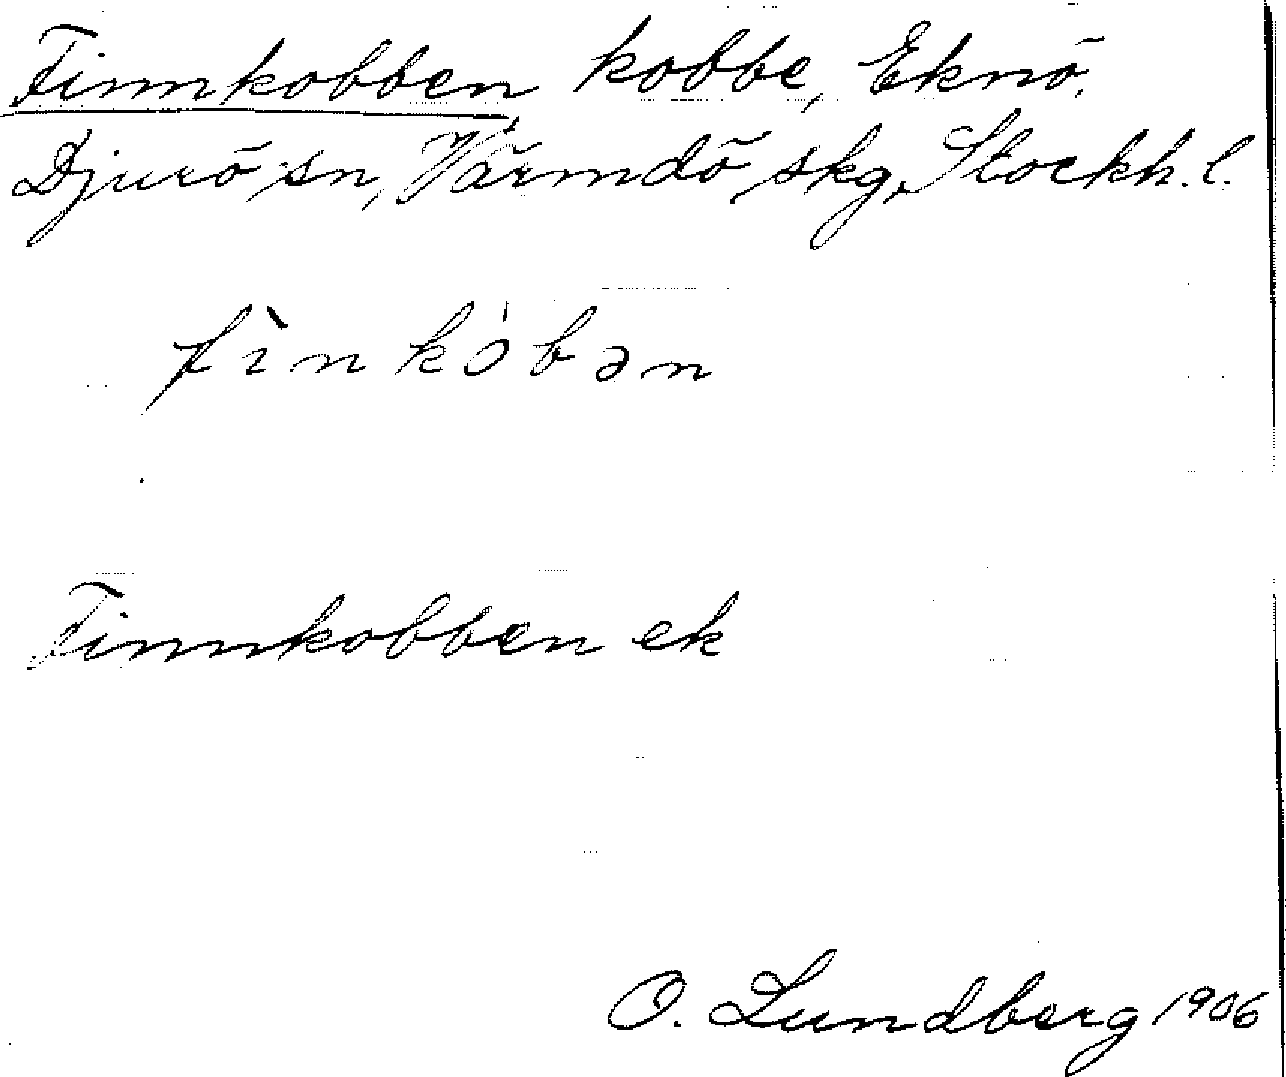 Finnkobben kobbe, Eknö,
Djurö sn, Värmdö skg, Stockh. l.
fìnkòbən
Finnkobben ek
O. Lundberg 1906